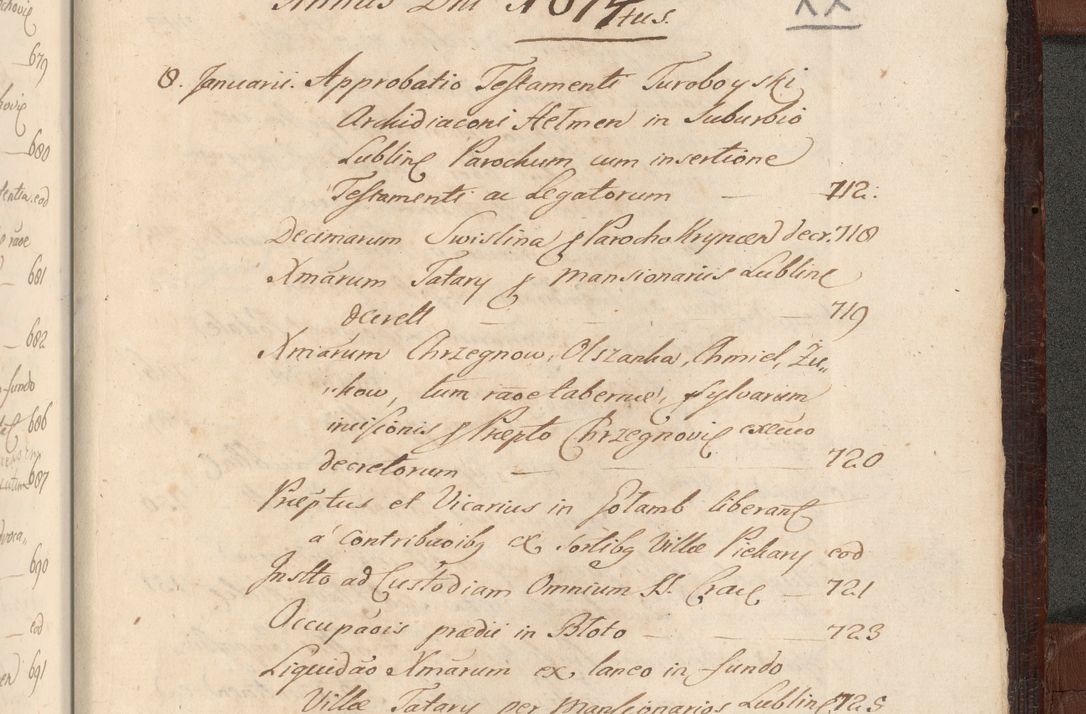 Annus Dni 1674tus.
XX
8. Januarii. Approbatio Testamenti Turoboyski
Archidiaconi Hetmen in Suburbio
Lublin Parochum cum insertione
Testamenti ac Legatorum — 712.
Decimarum Swislina p Parocho Kryncen decr. 718
Xmarum Tatary p Mansionariis Lublin
decrett — 719
Xmarum Chrzegnow, Olszanka, Chmiel, Zu„
„kow, tum raoe tabernæ, p sylvarum
incisionis p Præpto Chrzegnovi execuo
decretorum — 720
Præptus et Vicarius in Gotamb liberant
a contribuoibq ex sortibq Villæ Piekary eod
Instto ad Custodiam Omnium SS. Crac — 721
Occupaois prædii in Bloto — 723
Liquidao Xmarum ex laneo in fundo
Villæ Tatary per Mansionarios Lublin 725
679
680
eod
raoe
681
682
fundo
686
687
690
eod
691